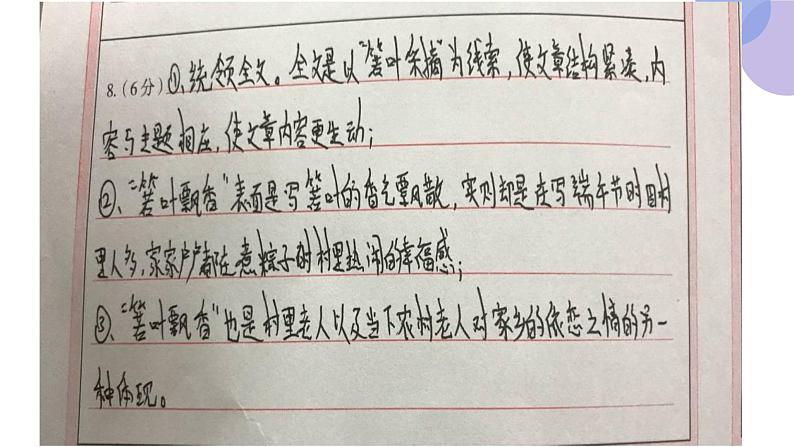 8.(6分)①、统领全文。全文是以“箬叶采摘”为线索,使文章结构紧凑,内
容与主题相应,使文章内容更生动;
②、“箬叶飘香”表面是写箬叶的香气飘散,实则却是在写端午节时因村
里人多,家家户户都在煮粽子时村里热闹的幸福感;
③、“箬叶飘香”也是村里老人以及当下农村老人对家乡的依恋之情的另一
种体现。